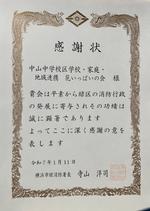 感謝状
中山中学校区学校・家庭・
地域連携 花いっぱいの会 様
貴会は平素から緑区の消防行政
の発展に寄与されその功績は
誠に顕著であります
よってここに深く感謝の意を
表します
令和7年1月11日
横浜市緑消防署長 寺山 洋司